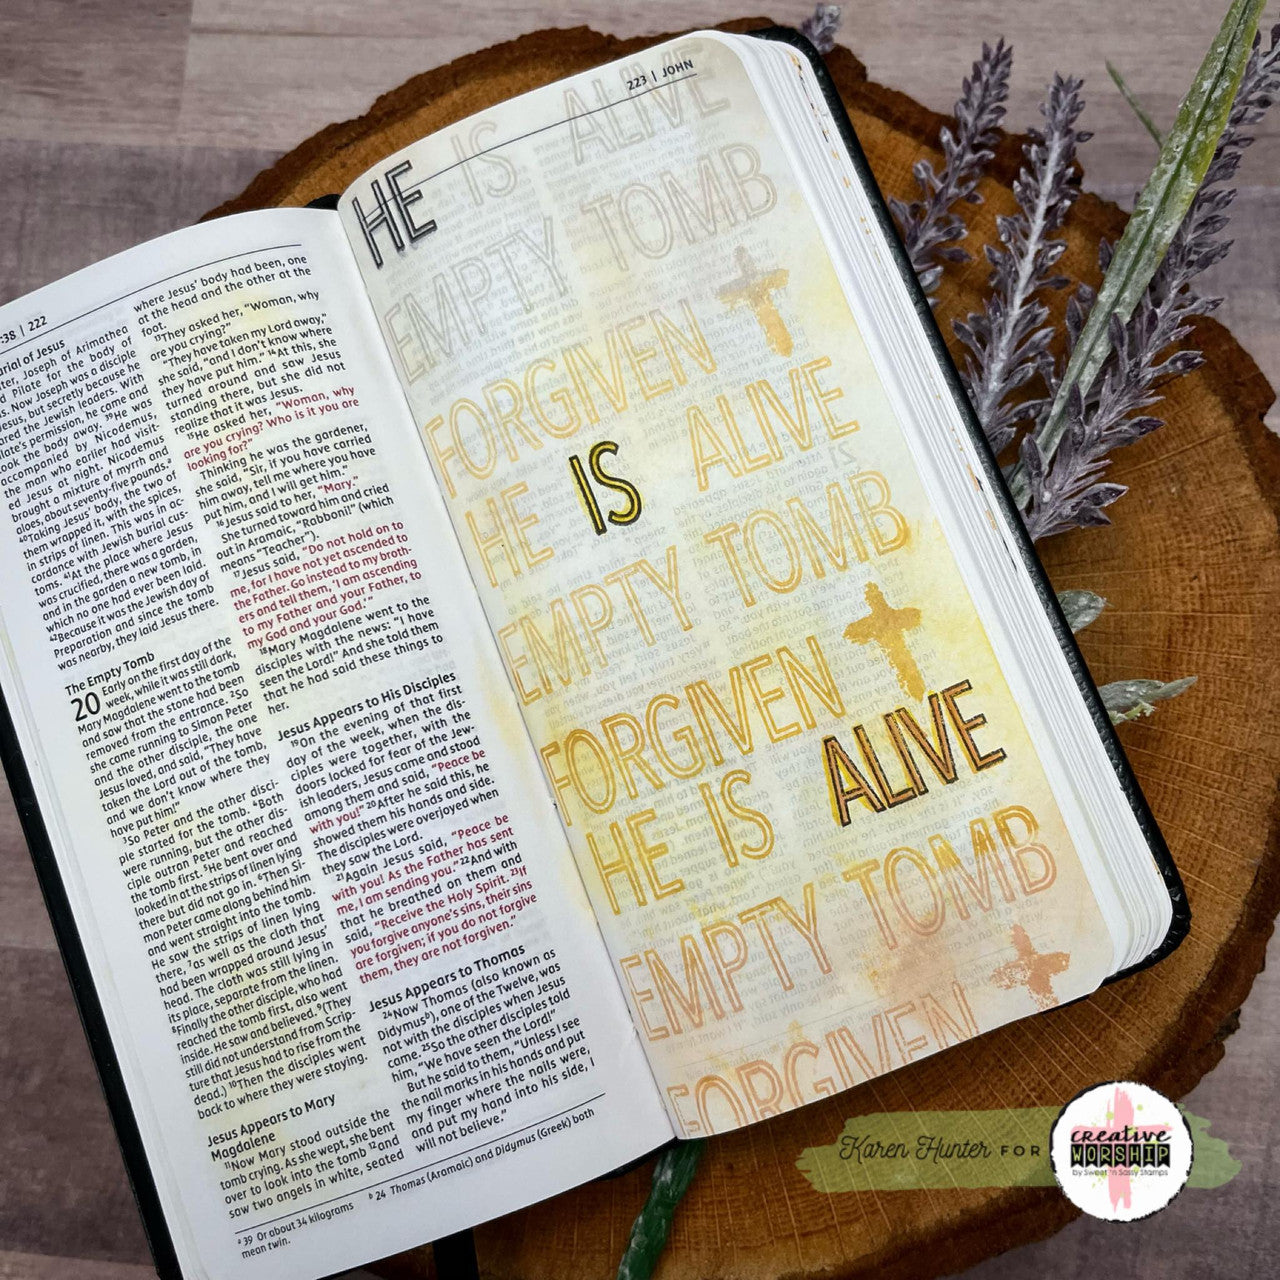 :38 | 222
urial of Jesus
ter, Joseph of Arimathea
d Pilate for the body of
s. Now Joseph was a disciple
Jesus, but secretly because he
ared the Jewish leaders. With
late's permission, he came and
took the body away. 39He was
accompanied by Nicodemus,
the man who earlier had visit-
ed Jesus at night. Nicodemus
brought a mixture of myrrh and
aloes, about seventy-five pounds.a
40Taking Jesus' body, the two of
them wrapped it, with the spices,
in strips of linen. This was in ac-
cordance with Jewish burial cus-
toms. 41At the place where Jesus
was crucified, there was a garden,
and in the garden a new tomb, in
which no one had ever been laid.
42Because it was the Jewish day of
Preparation and since the tomb
was nearby, they laid Jesus there.
The Empty Tomb
20 Early on the first day of the
week, while it was still dark,
Mary Magdalene went to the tomb
and saw that the stone had been
removed from the entrance. 2So
she came running to Simon Peter
and the other disciple, the one
Jesus loved, and said, "They have
taken the Lord out of the tomb,
and we don't know where they
have put him!"
3So Peter and the other disci-
ple started for the tomb. 4Both
were running, but the other dis-
ciple outran Peter and reached
the tomb first. 5He bent over and
looked in at the strips of linen lying
there but did not go in. 6Then Si-
mon Peter came along behind him
and went straight into the tomb.
He saw the strips of linen lying
there, 7as well as the cloth that
had been wrapped around Jesus'
head. The cloth was still lying in
its place, separate from the linen.
8Finally the other disciple, who had
reached the tomb first, also went
inside. He saw and believed. 9(They
still did not understand from Scrip-
ture that Jesus had to rise from the
dead.) 10Then the disciples went
back to where they were staying.
Jesus Appears to Mary
Magdalene
11Now Mary stood outside the
tomb crying. As she wept, she bent
over to look into the tomb 12and
saw two angels in white, seated
where Jesus' body had been, one
at the head and the other at the
foot.
13They asked her, "Woman, why
are you crying?"
"They have taken my Lord away,"
she said, "and I don't know where
they have put him." 14At this, she
turned around and saw Jesus
standing there, but she did not
realize that it was Jesus.
15He asked her, "Woman, why
are you crying? Who is it you are
looking for?"
Thinking he was the gardener,
she said, "Sir, if you have carried
him away, tell me where you have
put him, and I will get him."
16Jesus said to her, "Mary."
She turned toward him and cried
out in Aramaic, "Rabboni!" (which
means "Teacher").
17Jesus said, "Do not hold on to
me, for I have not yet ascended to
the Father. Go instead to my broth-
ers and tell them, 'I am ascending
to my Father and your Father, to
my God and your God.'"
18Mary Magdalene went to the
disciples with the news: "I have
seen the Lord!" And she told them
that he had said these things to
her.
Jesus Appears to His Disciples
19On the evening of that first
day of the week, when the dis-
ciples were together, with the
doors locked for fear of the Jew-
ish leaders, Jesus came and stood
among them and said, "Peace be
with you!" 20After he said this, he
showed them his hands and side.
The disciples were overjoyed when
they saw the Lord.
21Again Jesus said, "Peace be
with you! As the Father has sent
me, I am sending you." 22And with
that he breathed on them and
said, "Receive the Holy Spirit. 23If
you forgive anyone's sins, their sins
are forgiven; if you do not forgive
them, they are not forgiven."
Jesus Appears to Thomas
24Now Thomas (also known as
Didymusb), one of the Twelve, was
not with the disciples when Jesus
came. 25So the other disciples told
him, "We have seen the Lord!"
But he said to them, "Unless I see
the nail marks in his hands and put
my finger where the nails were,
and put my hand into his side, I
will not believe."
a 39 Or about 34 kilograms b 24 Thomas (Aramaic) and Didymus (Greek) both
mean twin.
223 | JOHN
HE IS ALIVE
EMPTY TOMB
FORGIVEN
HE IS ALIVE
EMPTY TOMB
FORGIVEN
HE IS ALIVE
EMPTY TOMB
FORGIVEN
Karen Hunter FOR
creative
WORSHIP
by Sweet 'n Sassy Stamps